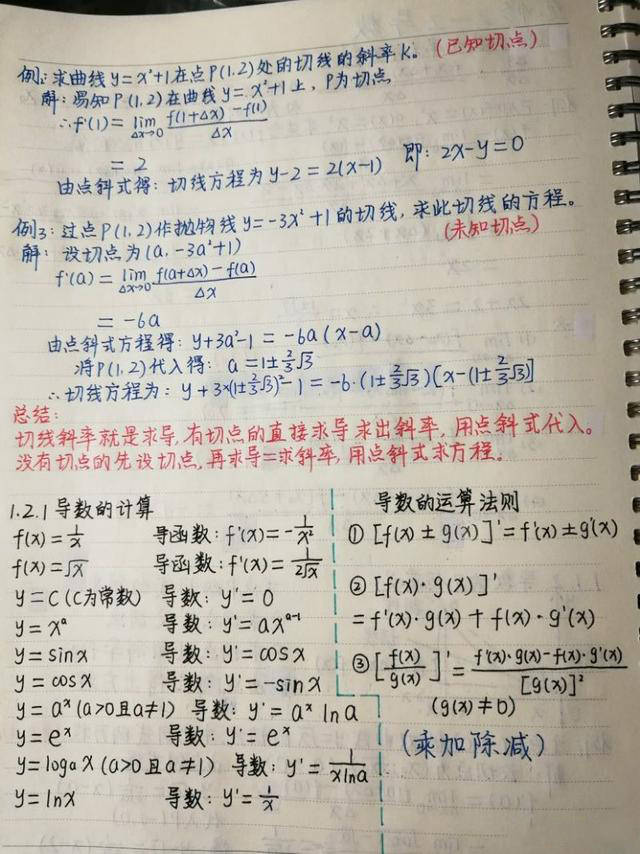 例2:求曲线y=x²+1在点P(1,2)处的切线的斜率k。(已知切点)
解:易知P(1,2)在曲线y=x²+1上,P为切点
∴f'(1)=lim Δx→0 f(1+Δx)-f(1)/Δx
=2
由点斜式得:切线方程为y-2=2(x-1) 即:2x-y=0
例3:过点P(1,2)作抛物线y=-3x²+1的切线,求此切线的方程。
(未知切点)
解:设切点为(a,-3a²+1)
f'(a)=lim Δx→0 f(a+Δx)-f(a)/Δx
=-6a
由点斜式方程得:y+3a²-1=-6a(x-a)
将P(1,2)代入得:a=1±2/3√3
∴切线方程为:y+3×(1±2/3√3)²-1=-6·(1±2/3√3)[x-(1±2/3√3)]
总结:
切线斜率就是求导,有切点的直接求导求出斜率,用点斜式代入。
没有切点的先设切点,再求导=求斜率,用点斜式求方程。
1.2.1导数的计算
f(x)=1/x 导函数:f'(x)=-1/x²
f(x)=√x 导函数:f'(x)=1/2√x
y=C(C为常数) 导数:y'=0
y=xᵃ 导数:y'=axᵃ⁻¹
y=sinx 导数:y'=cosx
y=cosx 导数:y'=-sinx
y=aˣ(a>0且a≠1) 导数:y'=aˣlna
y=eˣ 导数:y'=eˣ
y=logₐx(a>0且a≠1) 导数:y'=1/xlna
y=lnx 导数:y'=1/x
导数的运算法则
①[f(x)±g(x)]'=f'(x)±g'(x)
②[f(x)·g(x)]'
=f'(x)·g(x)+f(x)·g'(x)
③[f(x)/g(x)]'=f'(x)·g(x)-f(x)·g'(x)/[g(x)]²
(g(x)≠0)
(乘加除减)